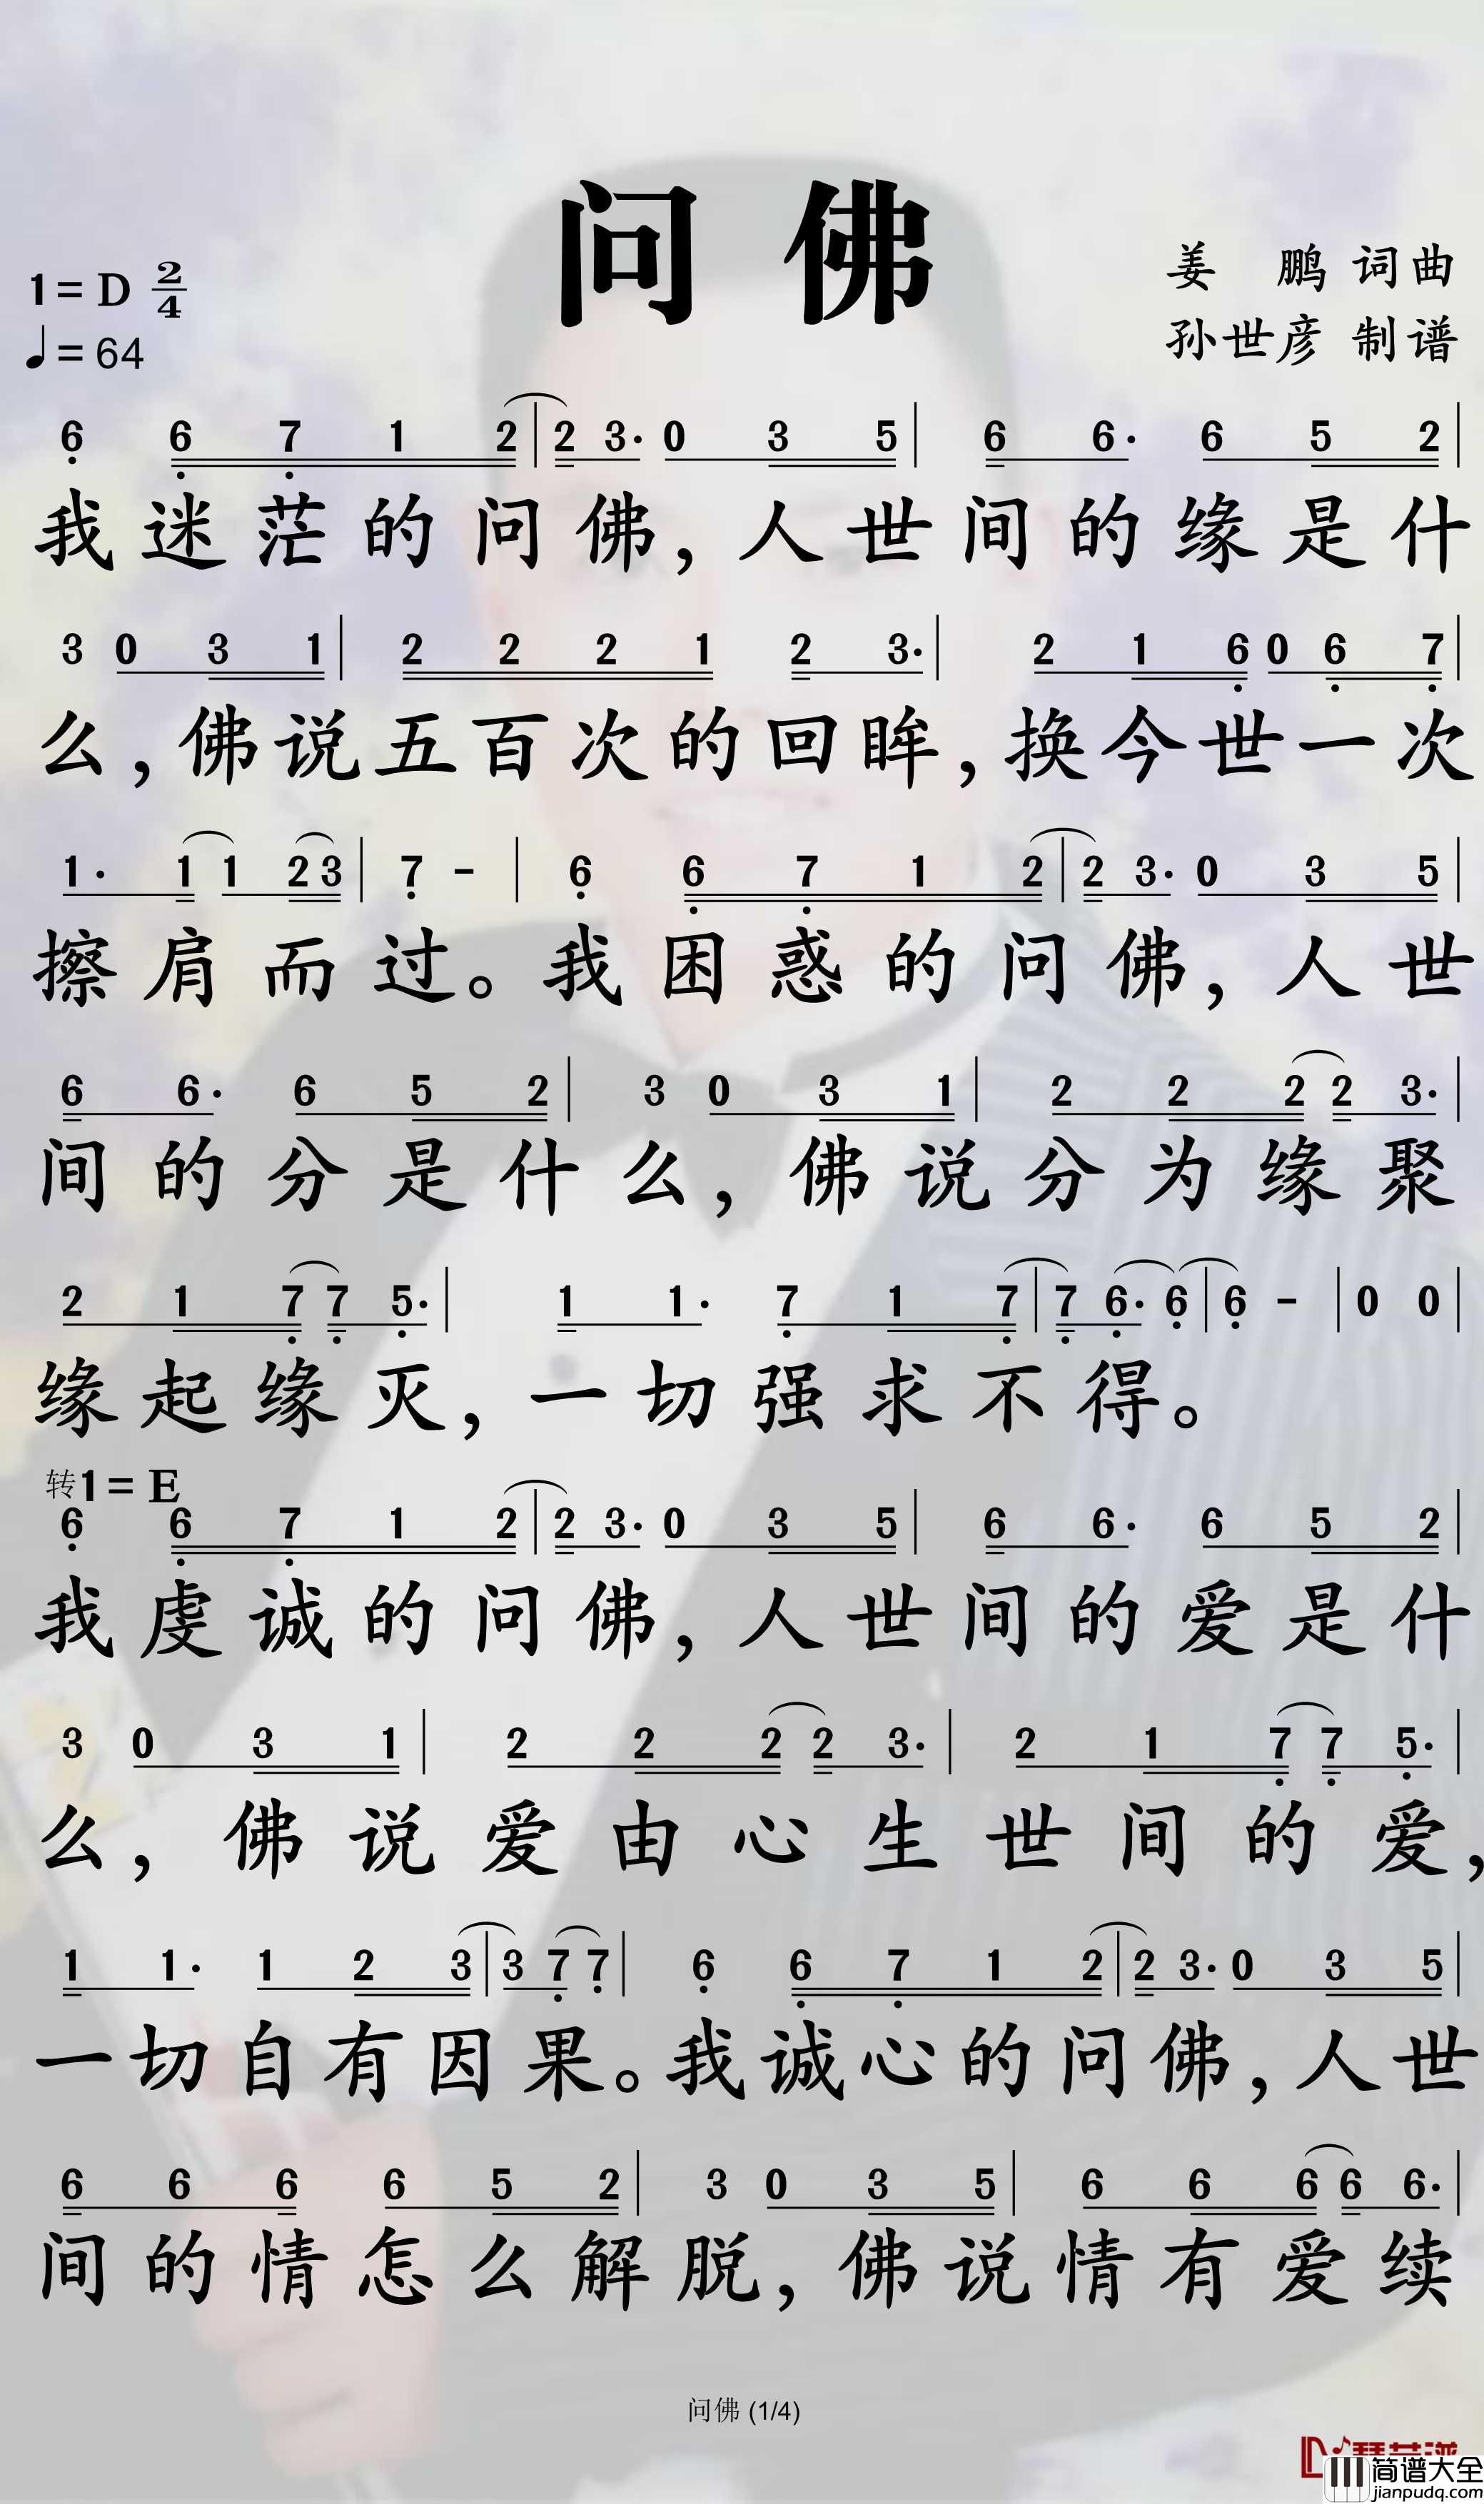 问 佛
姜 鹏 词曲
1= D 2/4
孙世彦 制谱
♩= 64
6̣ 6̣ 7̣ 1 2 | 2 3· 0 3 5 | 6 6· 6 5 2 |
我迷茫的问佛，人世间的缘是什
3 0 3 1 | 2 2 2 1 2 3· | 2 1 6̣ 0 6̣ 7̣ |
么，佛说五百次的回眸，换今世一次
1· 1 1 2 3 | 7̣ - | 6̣ 6̣ 7̣ 1 2 | 2 3· 0 3 5 |
擦肩而过。我困惑的问佛，人世
6 6· 6 5 2 | 3 0 3 1 | 2 2 2 2 3· |
间的分是什么，佛说分为缘聚
2 1 7̣ 7̣ 5̣· | 1 1· 7̣ 1 7̣ | 7̣ 6̣· 6̣ | 6̣ - | 0 0 |
缘起缘灭，一切强求不得。
转1= E
6̣ 6̣ 7̣ 1 2 | 2 3· 0 3 5 | 6 6· 6 5 2 |
我虔诚的问佛，人世间的爱是什
3 0 3 1 | 2 2 2 2 3· | 2 1 7̣ 7̣ 5̣· |
么，佛说爱由心生世间的爱，
1 1· 1 2 3 | 3 7̣ 7̣ | 6̣ 6̣ 7̣ 1 2 | 2 3· 0 3 5 |
一切自有因果。我诚心的问佛，人世
6 6 6 6 5 2 | 3 0 3 5 | 6 6 6 6 6· |
间的情怎么解脱，佛说情有爱续
问佛 (1/4)
简谱大全
jianpudq.com